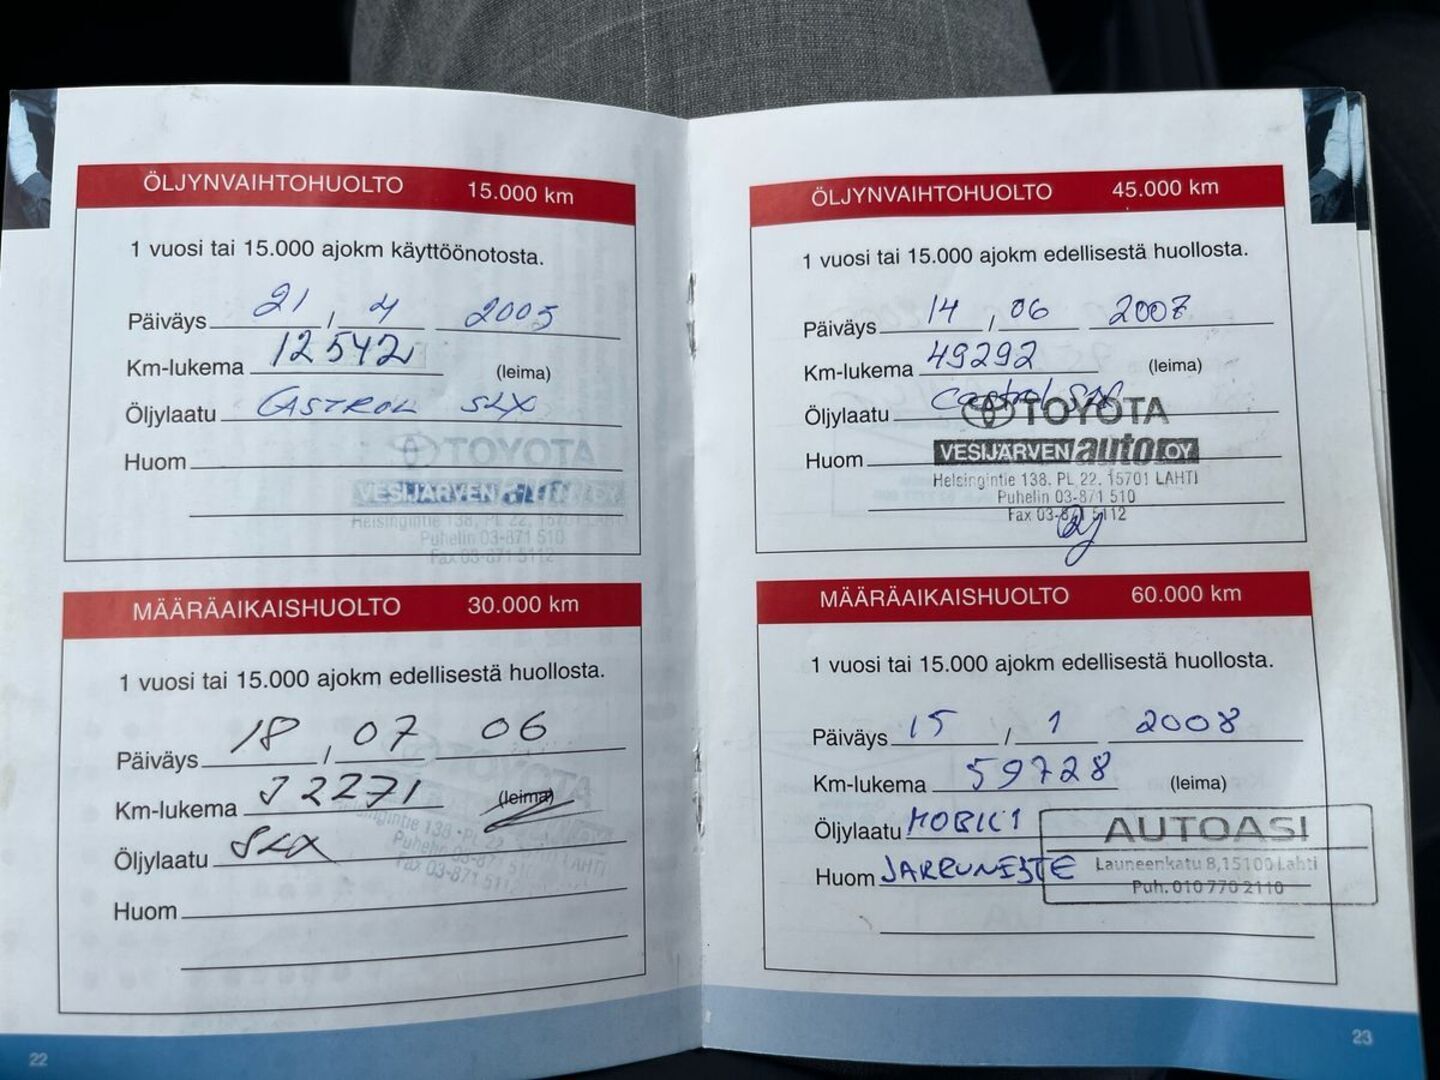 ÖLJYNVAIHTOHUOLTO 15.000 km
1 vuosi tai 15.000 ajokm käyttöönotosta.
Päiväys 21 / 4 2005
Km-lukema 12542 (leima)
Öljylaatu CASTROL SLX
TOYOTA
Huom
VESIJÄRVEN auto OY
Helsingintie 138, PL 22, 15701 LAHTI
Puhelin 03-871 510
Fax 03-871 5112
MÄÄRÄAIKAISHUOLTO 30.000 km
1 vuosi tai 15.000 ajokm edellisestä huollosta.
Päiväys 18 / 07 06
Km-lukema 32271 (leima)
TOYOTA
Helsingintie 138 PL 22 LAHTI
Öljylaatu SLX
Puhelin 03-871 510
Fax 03-871 5112
Huom
22
ÖLJYNVAIHTOHUOLTO 45.000 km
1 vuosi tai 15.000 ajokm edellisestä huollosta.
Päiväys 14 / 06 2007
Km-lukema 49292 (leima)
Öljylaatu Castrol SLX
TOYOTA
Huom
VESIJÄRVEN auto OY
Helsingintie 138. PL 22. 15701 LAHTI
Puhelin 03-871 510
Fax 03-871 5112
MÄÄRÄAIKAISHUOLTO 60.000 km
1 vuosi tai 15.000 ajokm edellisestä huollosta.
Päiväys 15 / 1 2008
Km-lukema 59728 (leima)
Öljylaatu MOBIL 1
AUTOASI
Huom JARRUNESTE
Launeenkatu 8, 15100 Lahti
Puh. 010 770 2110
23